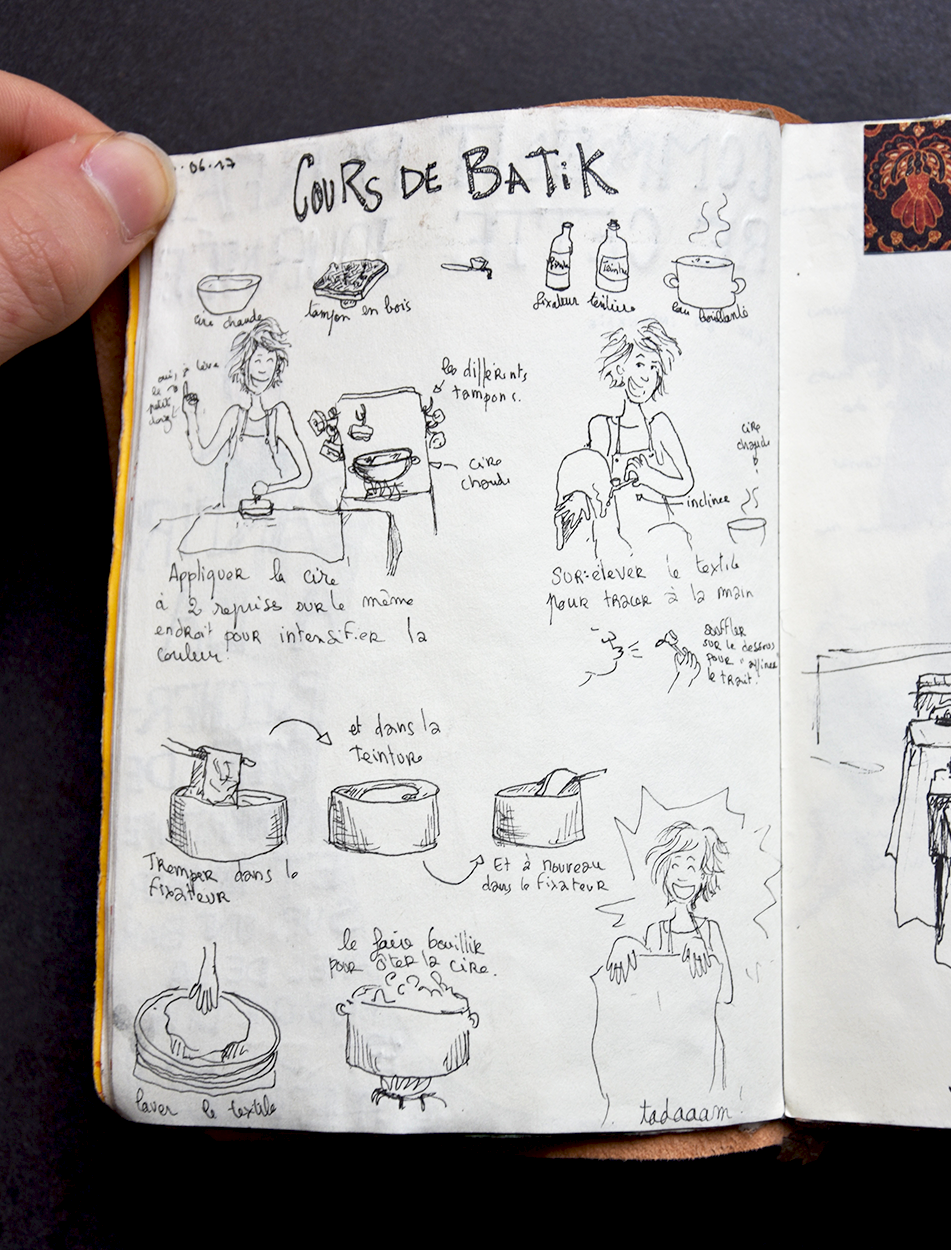 06.17
COURS DE BATIK
cire chaude
tampon en bois
fixateur teinture
eau bouillante
oui, je lève
le
petit
doigt
les différents
tampons.
cire
chaude
cire
chaude
incliner
Appliquer la cire
à 2 reprises sur le même
endroit pour intensifier la
couleur.
SUR-élever le textile
pour tracer à la main
souffler
sur le dessous
pour "affiner"
le trait.
et dans la
teinture
Tremper dans le
fixateur
Et à nouveau
dans le fixateur
le faire bouillir
pour ôter la cire.
laver le textile
tadaaam!